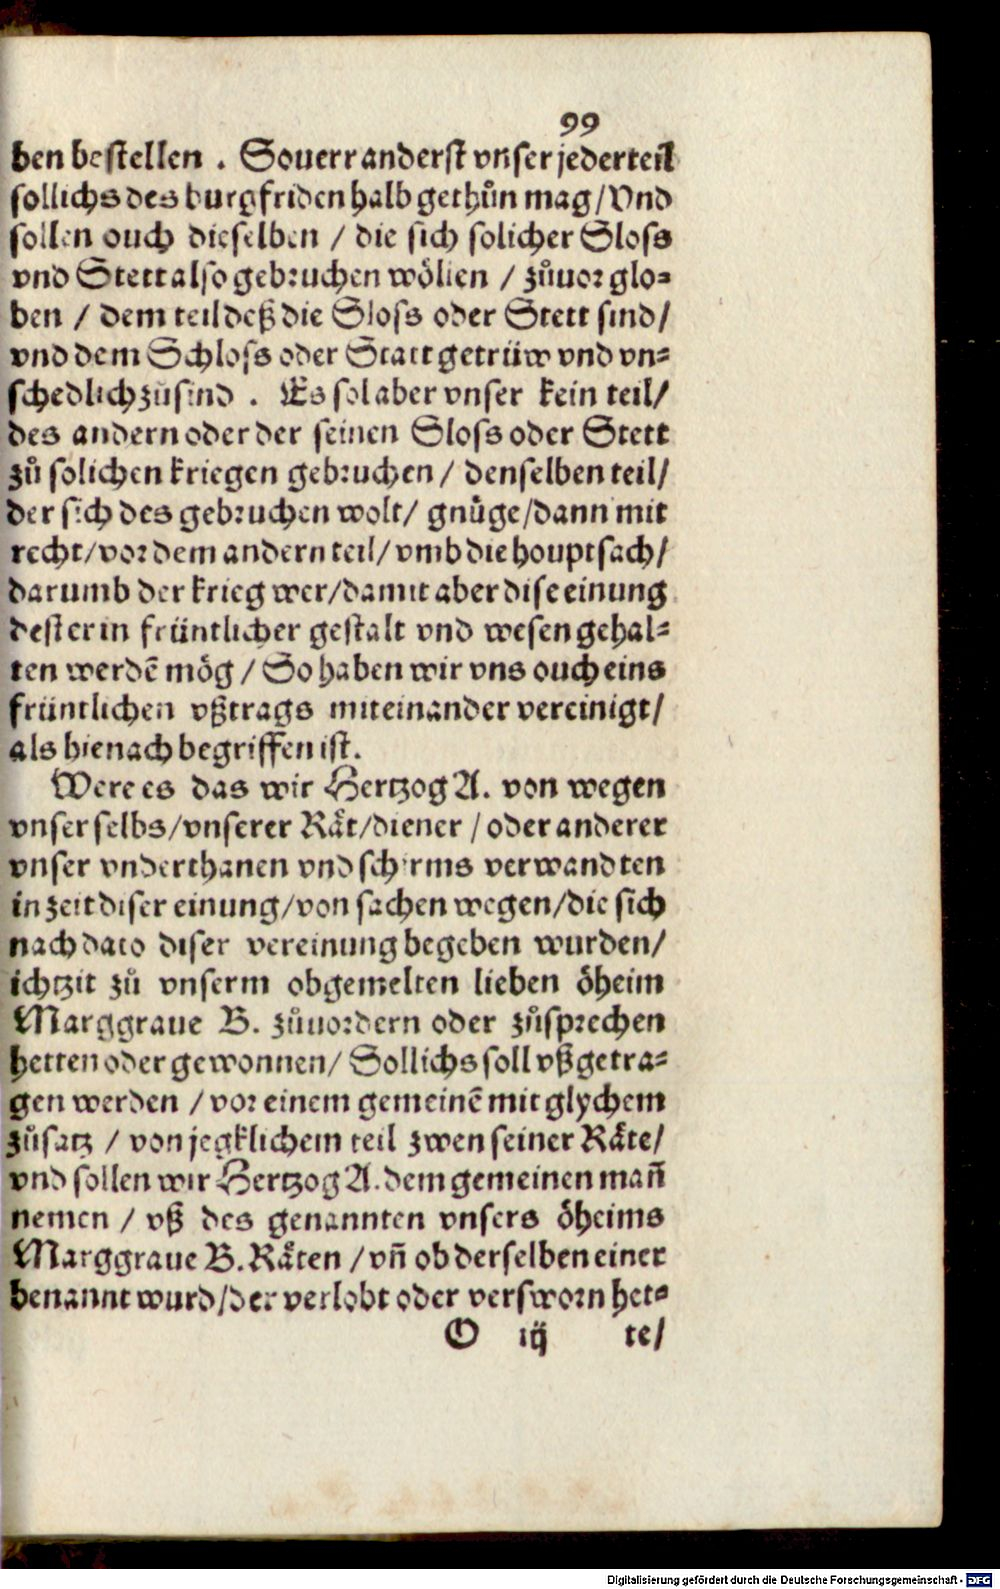 99
ben bestellen . Souerr anderst vnser jederteil
sollichs des burgfriden halb gethůn mag / Vnd
sollen ouch dieselben / die sich solicher Sloss
vnd Stett also gebruchen wöllen / zůuor glo⸗
ben / dem teil deß die Sloss oder Stett sind /
vnd dem Schloss oder Statt getrüw vnd vn⸗
schedlich zůsind . Es sol aber vnser kein teil /
des andern oder der seinen Sloss oder Stett
zů solichen kriegen gebruchen / denselben teil /
der sich des gebruchen wolt / gnůge / dann mit
recht / vor dem andern teil / vmb die houptsach /
darumb der krieg wer / damit aber dise einung
dester in früntlicher gestalt vnd wesen gehal⸗
ten werdē mög / So haben wir vns ouch eins
früntlichen vßtrags miteinander vereinigt /
als hienach begriffen ist.
Were es das wir Hertzog A. von wegen
vnser selbs / vnserer Råt / diener / oder anderer
vnser vnderthanen vnd schirms verwandten
in zeit diser einung / von sachen wegen / die sich
nach dato diser vereinung begeben wurden /
ichtzit zů vnserm obgemelten lieben öheim
Marggraue B. zůuordern oder zůsprechen
hetten oder gewonnen / Sollichs soll vßgetra⸗
gen werden / vor einem gemeinē mit glychem
zůsatz / von jegklichem teil zwen seiner Råte /
vnd sollen wir Hertzog A. dem gemeinen mañ
nemen / vß des genannten vnsers öheims
Marggraue B. Råten / vñ ob derselben einer
benannt wurd / der verlobt oder versworn het⸗
O iij te /
Digitalisierung gefördert durch die Deutsche Forschungsgemeinschaft - DFG